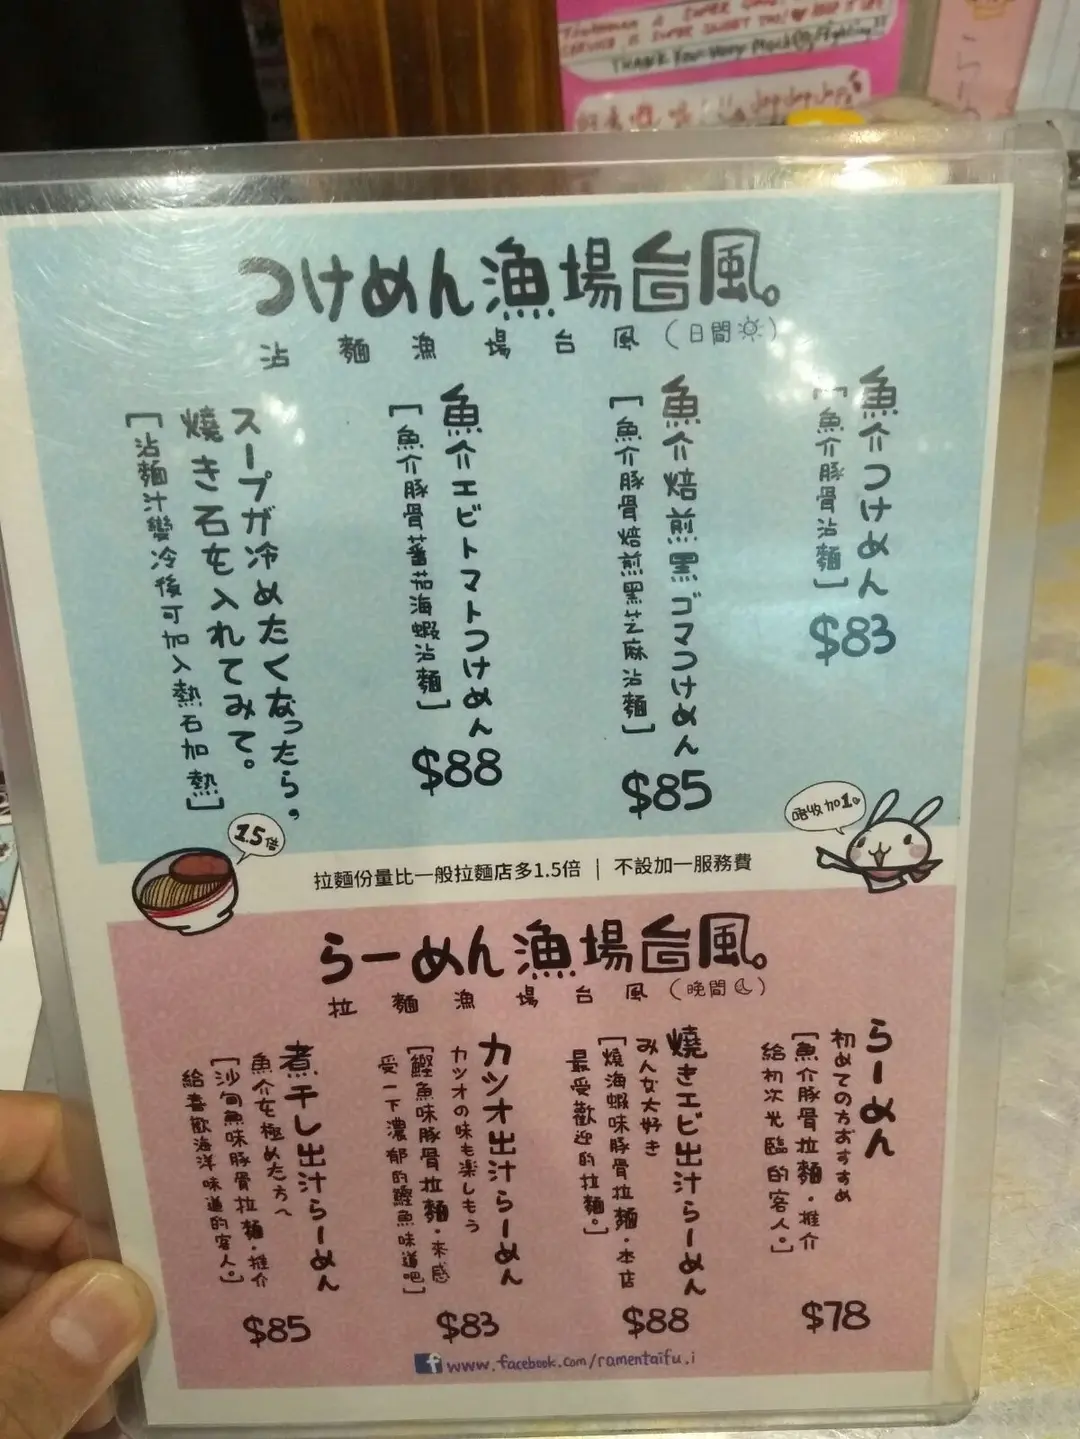 SERVICE IS SUPER SWEET TOO!
THANK YOU Very Much
つけめん漁場台風。
沾麵漁場台風(日間)
魚介つけめん
[魚介豚骨沾麵]
$83
魚介焙煎黒ゴマつけめん
[魚介豚骨焙煎黑芝麻沾麵]
$85
魚介エビトマトつけめん
[魚介豚骨蕃茄海蝦沾麵]
$88
スープが冷めたくなったら。
焼き石を入れてみて。
[沾麵汁變冷後可加入熱石加熱]
1.5倍
唔收加1。
拉麵份量比一般拉麵店多1.5倍 | 不設加一服務費
らーめん漁場台風。
拉麵漁場台風(晚間)
らーめん
初めての方おすすめ
[魚介豚骨拉麵·推介
給初次光臨的客人。]
$78
燒きエビ出汁らーめん
みんな大好き
[燒海蝦味豚骨拉麵·本店
最受歡迎的拉麵。]
$88
カツオ出汁らーめん
カツオの味も楽しもう
[鰹魚味豚骨拉麵·來感
受一下濃郁的鰹魚味道吧]
$83
煮干し出汁らーめん
魚介を極めた方へ
[沙甸魚味豚骨拉麵·推介
給喜歡海洋味道的客人。]
$85
f www.facebook.com/ramentaifu.i